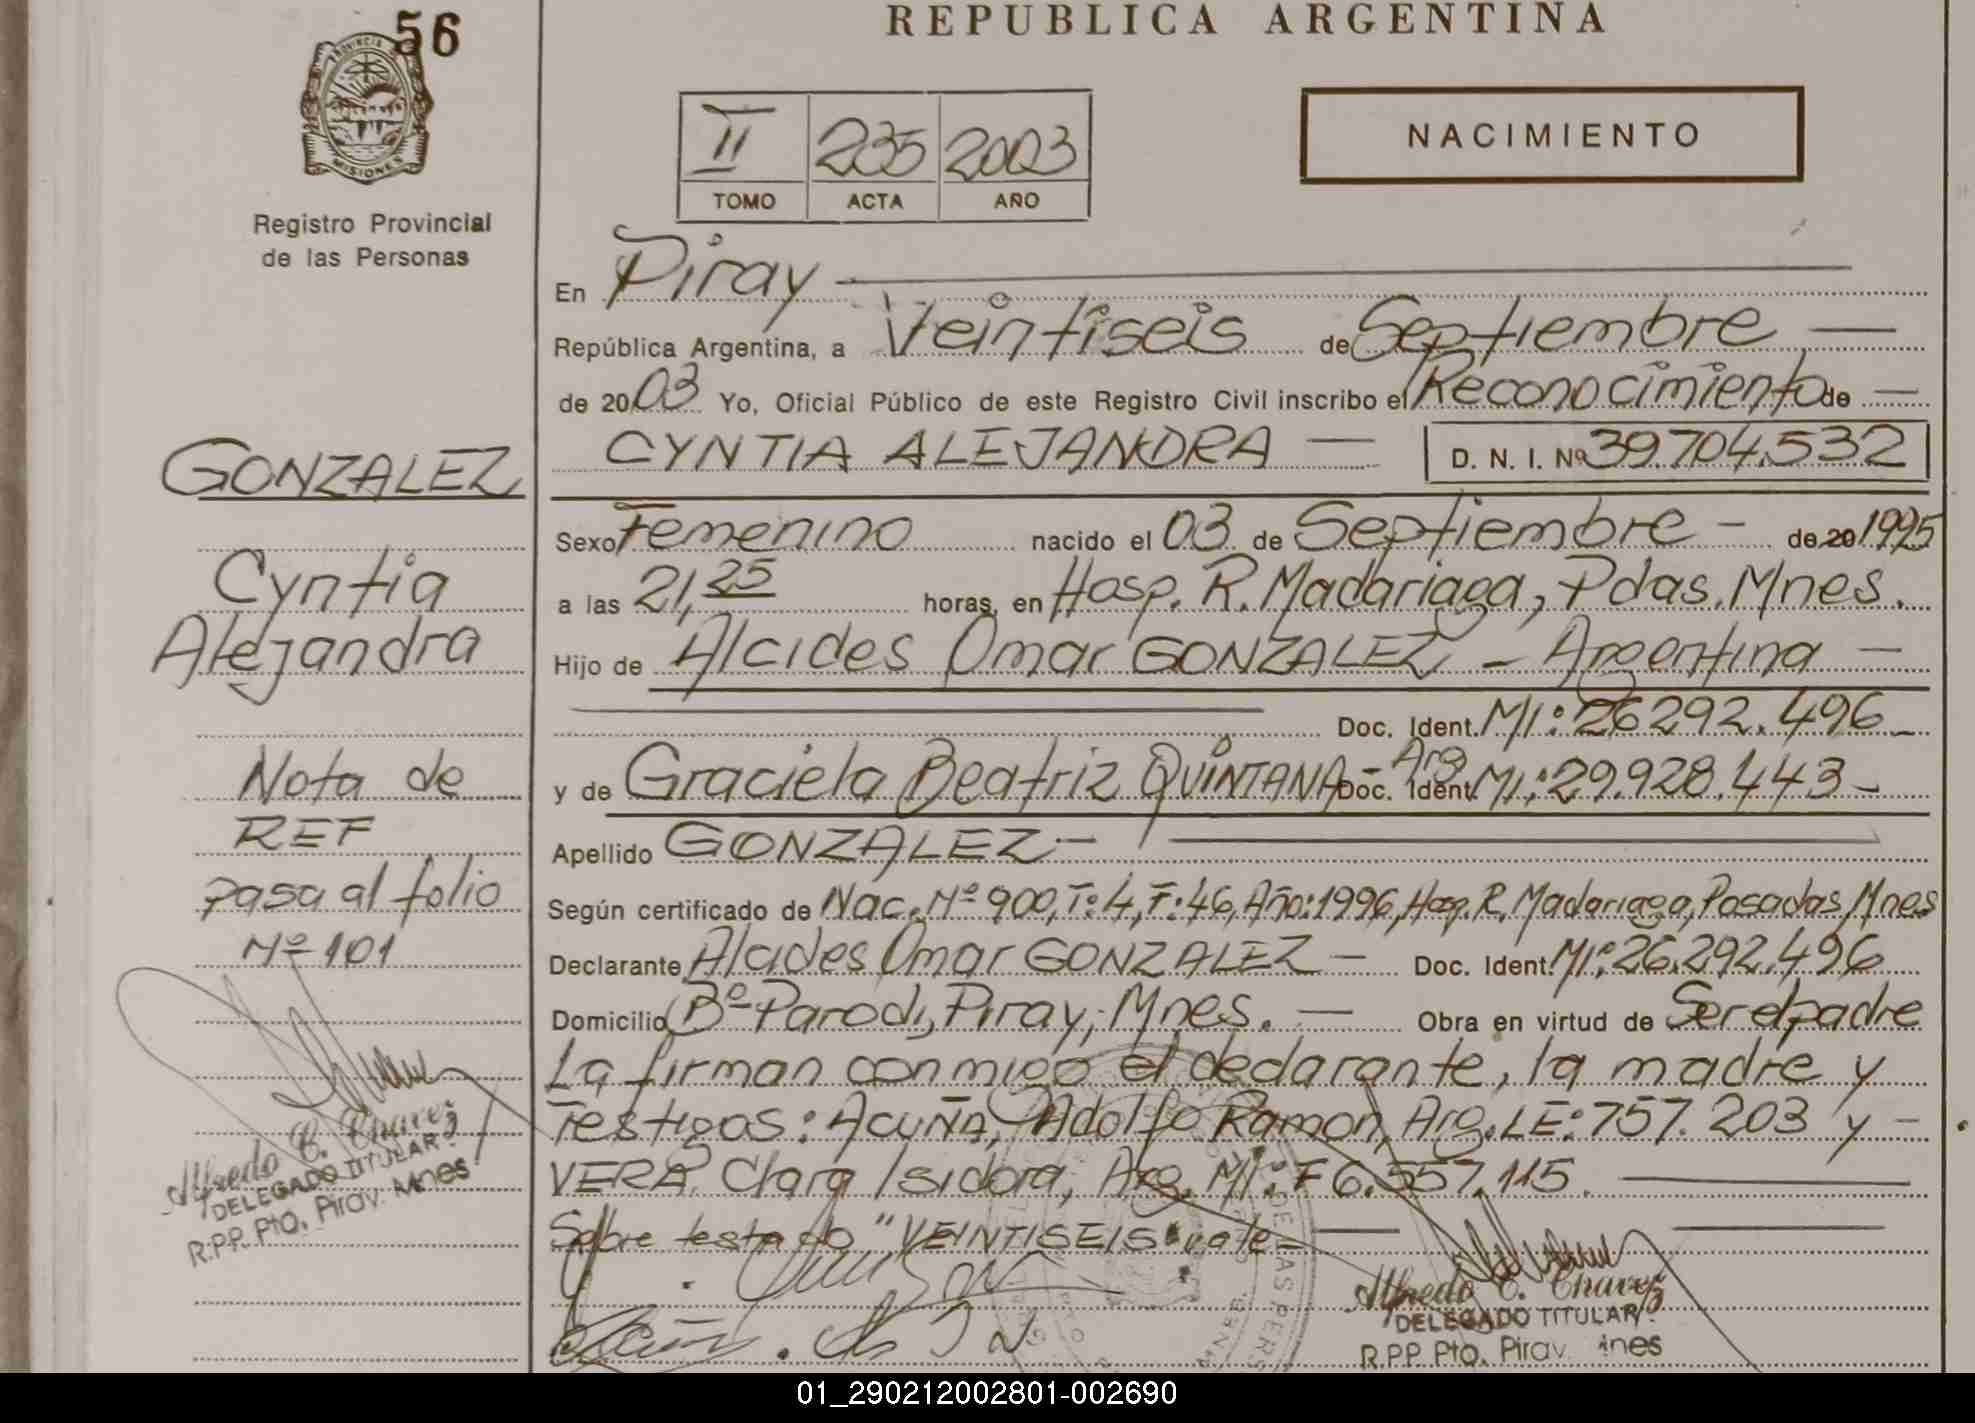 56
REPUBLICA ARGENTINA
PROVINCIA
MISIONES
Registro Provincial
de las Personas
II 235 2003
TOMO ACTA AÑO
NACIMIENTO
En Piray
República Argentina, a Veintiseis de Septiembre
de 2003 Yo, Oficial Público de este Registro Civil inscribo el Reconocimiento de
CYNTIA ALEJANDRA D. N. I. Nº 39.704.532
GONZALEZ
Cyntia
Alejandra
Nota de
REF
pasa al folio
Nº 101
Alfredo C. Chavez
DELEGADO TITULAR
R.P.P. Pto. Piray Mnes
Sexo Femenino nacido el 03 de Septiembre - de 20 1995
a las 21,25 horas, en Hosp. R. Madariaga, Pdas. Mnes.
Hijo de Alcides Omar GONZALEZ - Argentina
Doc. Ident. MI: 26292.496
y de Graciela Beatriz QUINTANA - Arg Doc. Ident MI: 29.928.443
Apellido GONZALEZ
Según certificado de Nac. Nº 900, T: 4, F: 46, Año: 1996, Hosp. R. Madariaga, Posadas, Mnes
Declarante Alcides Omar GONZALEZ - Doc. Ident. MI: 26.292.496
Domicilio Bº Parodi, Piray, Mnes. Obra en virtud de Ser el padre
La firman conmigo el declarante, la madre y
Testigos: ACUÑA, Adolfo Ramon, Arg. LE: 757.203 y
VERA, Clara Isidora, Arg. MI: F 6.557.115.
Sobre testado "VEINTISEIS" vale
Alfredo C. Chavez
DELEGADO TITULAR
R.P.P. Pto. Piray nes
01_290212002801-002690